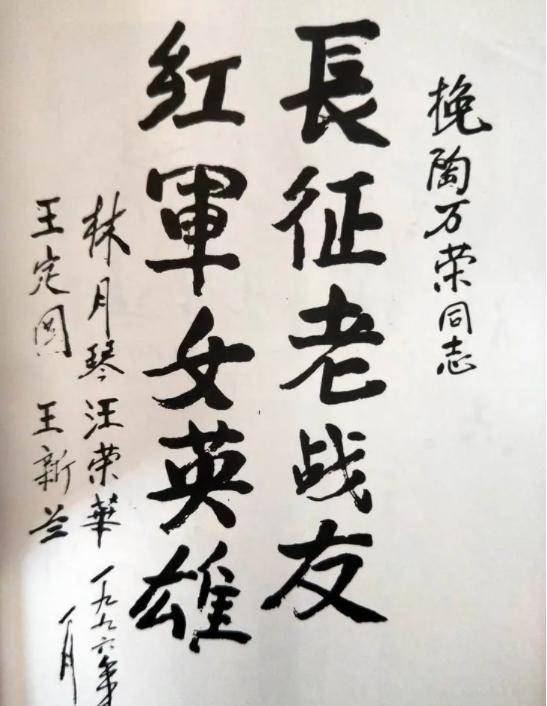 挽陶万荣同志
長征老战友
紅軍女英雄
林月琴 汪荣華 一九九六年
王定国 王新兰 一月